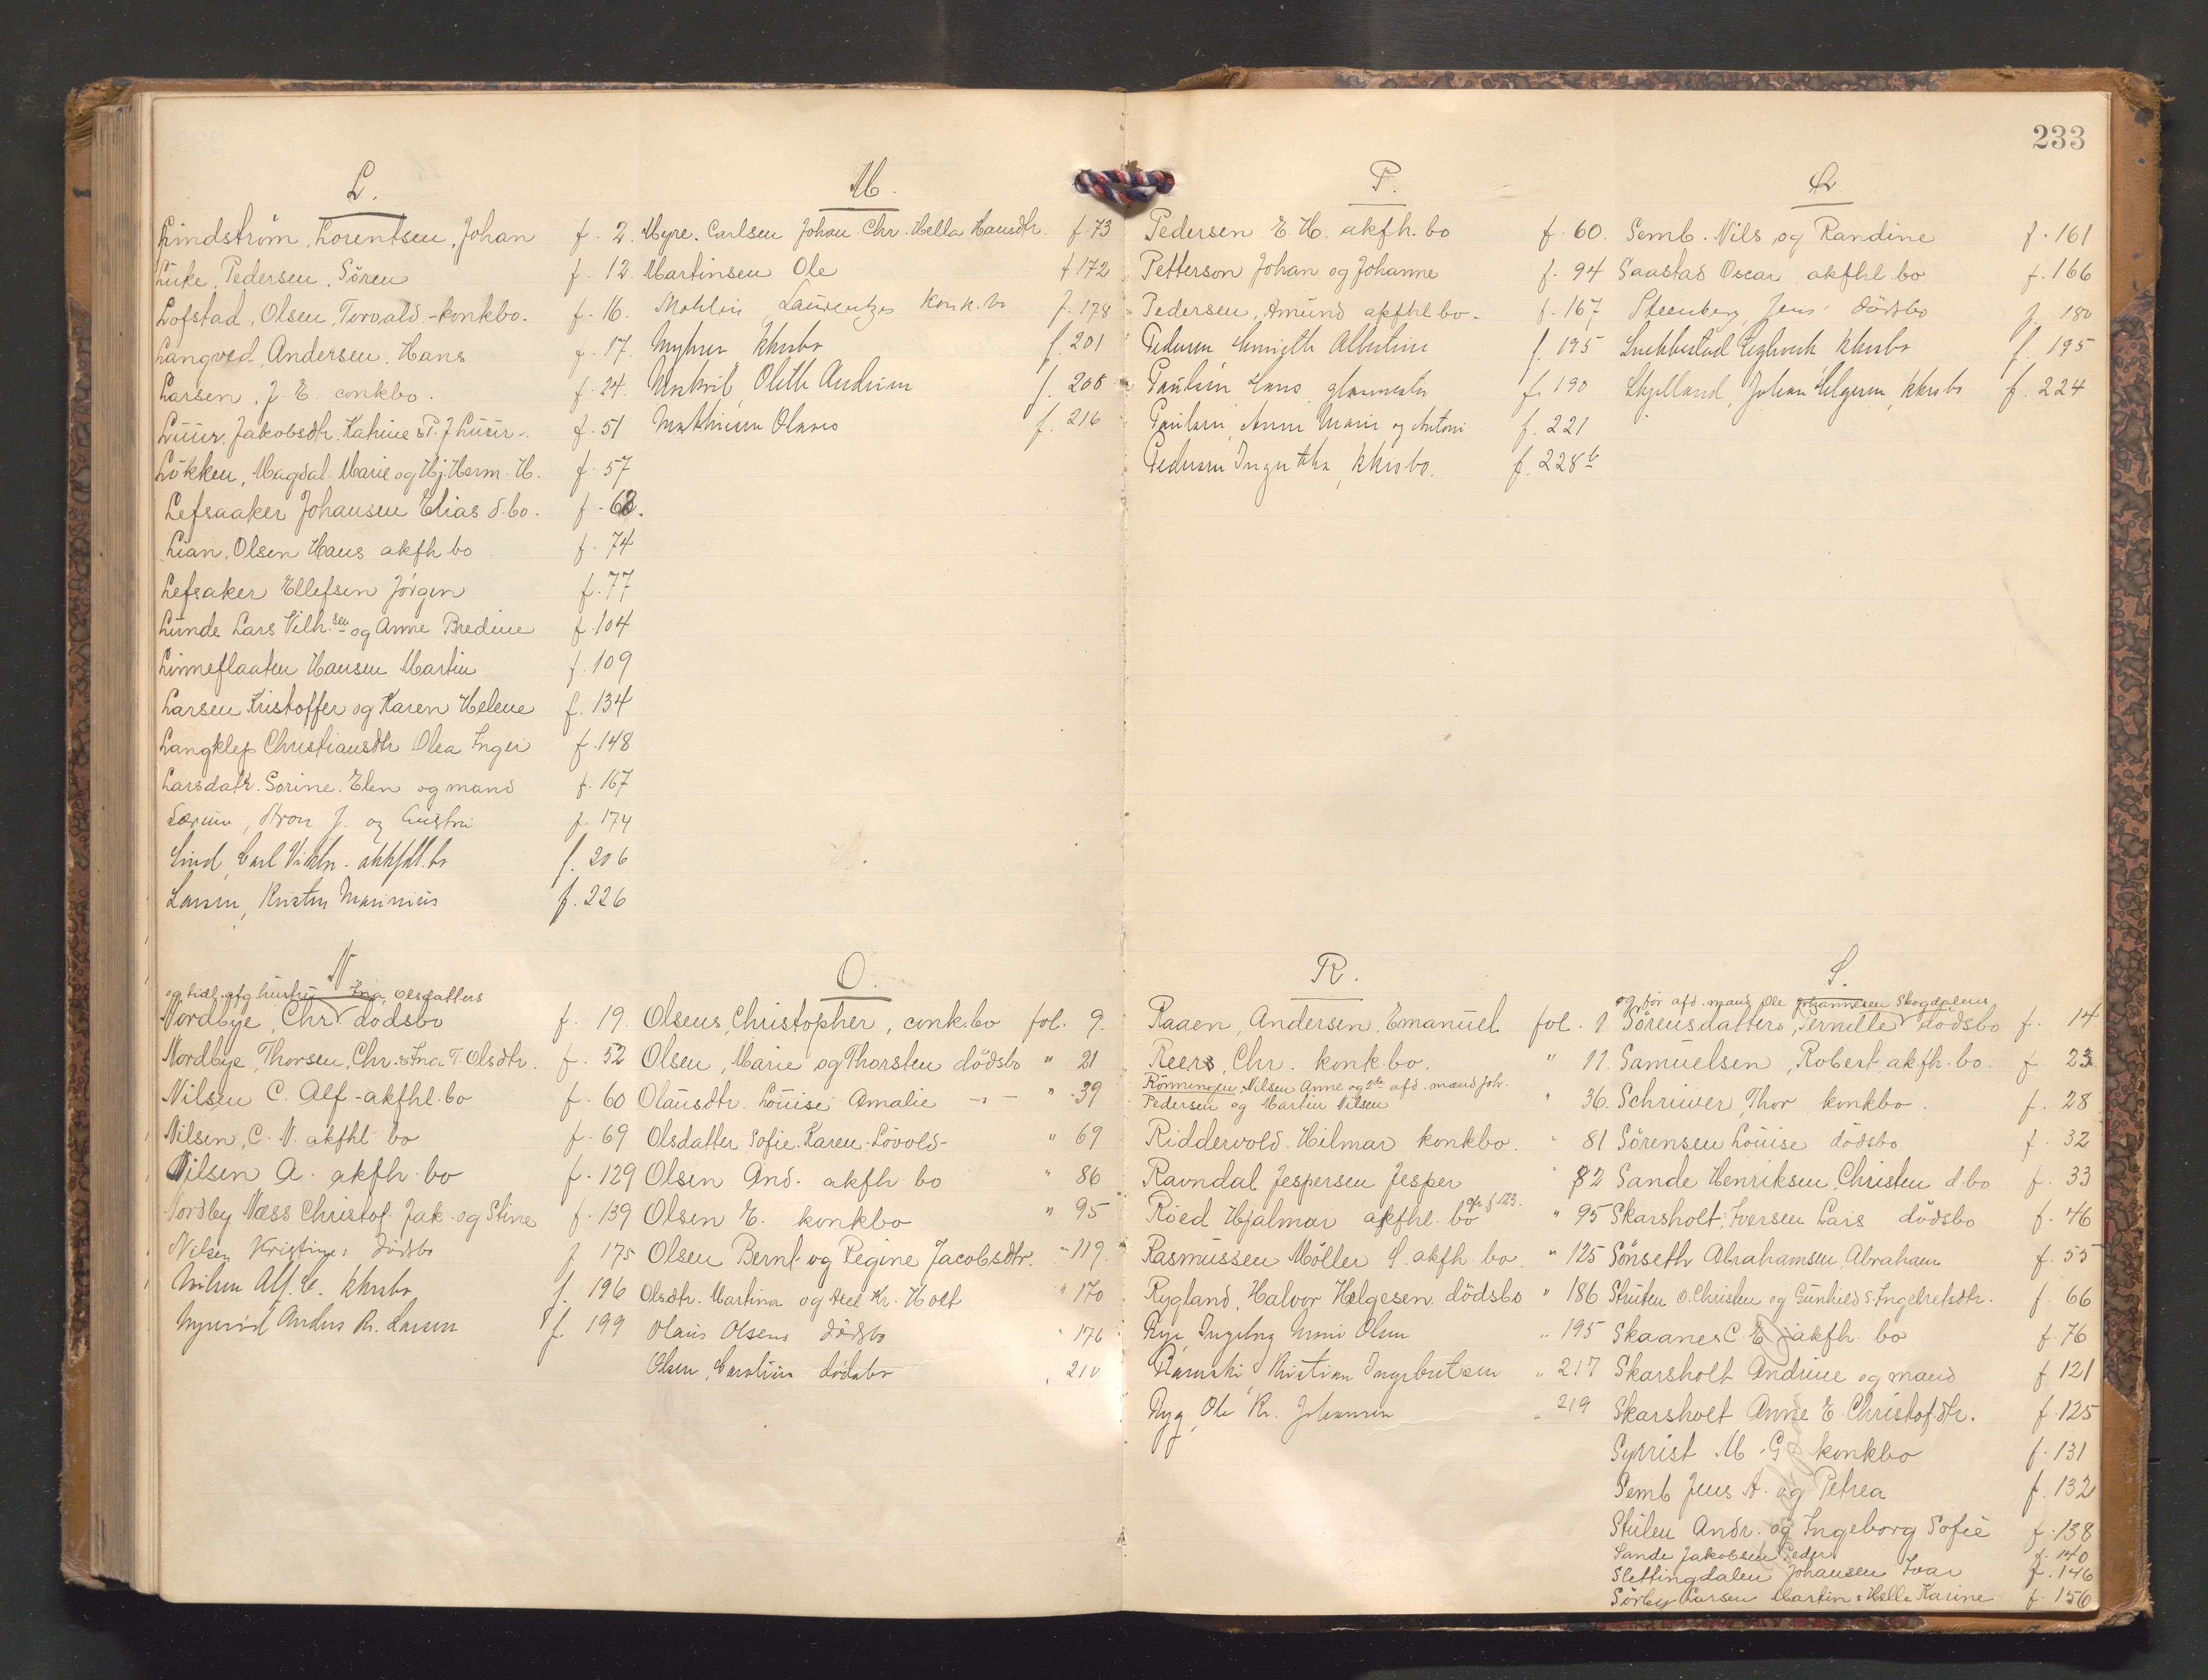 233
L.
Lindström, Lorentsen, Johan f. 2.
Luke, Pedersen, Sören f. 12.
Lofstad, Olsen, Torvald - konkbo. f. 16.
Langved, Andersen, Hans f. 17.
Larsen, J. E. conkbo. f. 24.
Luur, Jakobsdtr. Katrine & P. J Luur f. 51
Lökken, Magdal. Marie og Hj. Herm. H. f. 57
Lefsaaker Johansen Elias d.bo. f. 62.
Lian, Olsen Hans akfh bo f. 74
Lefsaker Ellefsen Jörgen f. 77
Lunde Lars Vilh.sen og Anne Bredine f. 104
Linneflaaten Hansen Martin f. 109
Larsen Kristoffer og Karen Helene f. 134
Langklep Christiansdtr Olea Inger f. 148
Larsdatr. Sorine. Elen og mand f. 167
Lærum, Aron J. og f. 174
Lind, Carl Viktor. akkfhl. bo f. 206
Larsen, Kristen Marinius f. 226
M.
Myre. Carlsen Johan. Chr. Hella Hansdtr. f. 73
Martinsen Ole f 172
Mohlin Laurentzes konk. bo f. 178
Myhrer kkrsbo f. 201
Olette Andrine f. 208
Mathisen Olaves f. 216
N
og tidl. afg hustru Ina Olesdatters
Nordbye, Chr dödsbo f. 19.
Nordbye, Thorsen, Chr. & Ina T. Olsdtr. f. 52
Nilsen C. Alf - akfhl. bo f. 60
Nilsen, C. N. akfhl bo f. 69
Nilsen A. akfh bo f. 129
Nordby Næss Christof. Jak. og Stine f. 139
Nilsen Kristines dödsbo f 175
Nilsen Alf. C. kkrsbo f. 196
Andres Kr. Larsen f. 199
O.
Olsens, Christopher, conk.bo fol. 9.
Olsen, Marie og Thorsten dödsbo " 21
Olausdtr. Louise Amalie -"- " 39
Olsdatter, Sofie. Karen - Lövold- " 69
Olsen And. akfh bo " 86
Olsen E. konkbo " 95
Olsen Bernt og Regine Jacobsdtr. " 119.
Olsdtr. Martina og Axel Kr. Holt " 170
Olaus Olsens dödsbo " 176
Olsen, Carolius dödsbo " 210
P.
Pedersen E. H. akfh. bo f. 60.
Petterson Johan og Johanne f. 94
Pedersen, Amund akfhl bo. f. 167
Pedersen Albertine f. 195
Paulsen, Hans, glarmester f. 190
Paulsen, Anne Marie og Antoni f. 221
Pedersen Inger Mka, kkrsbo. f. 228 b
S.
Semb. Nils og Randine f. 161
Saastad Oscar akfhl bo f. 166
Steenberg, Jens' dödsbo f 180
kkrsbo f. 195
Skjelland, Johan Helgesen, kkrsbo f. 224
R.
Raaen, Andersen, Emanuel fol. 1
Reers, Chr. konkbo. " 11.
Rönningen, Nilsen Anne og 2de afd. mænd Joh.
Pedersen og Martin Nilsen " 36.
Riddervold. Hilmar konkbo. " 81
Ravndal Jespersen Jesper " 82
Röed Hjalmar akfhl. bo cfr f 123. " 95
Rasmussen Möller S. akfh bo. " 125
Rygland, Halvor Helgesen dödsbo " 186
Rye, Ingeborg Marie Olsen " 195
Kristian Ingebretsen " 217
Ryg, Ole Kr. Johannesen " 219
S.
og för afd. mand Ole Johannesen Skogdalens
Sörensdatters, Pernille dödsbo f. 14
Samuelsen, Robert, akfh. bo. f 23.
Schriwer, Thor konkbo. f. 28
Sörensen Louise dödsbo f. 32
Sande Henriksen, Christen d.bo f. 33
Skarsholt, Iversen Lars dödsbo f. 46
Sönseth Abrahamsen, Abraham f. 55
Stuten O. Christen og Gunhild S. Ingebretsdtr. f. 66
Skaanes C. E. akfh. bo f. 76
Skarsholt Andrine og mand f 121
Skarsholt Anne E. Christof.dtr. f. 125
Syvrist M. G. konkbo f. 131
Semb Jens A. og Petrea f. 132
Stulen Andr. og Ingeborg Sofie f. 138
Sande Jakobsen Peder f. 140
Slettingdalen Johansen Ivar f. 146
Sörby Larsen Martin & Helle Karine f. 156